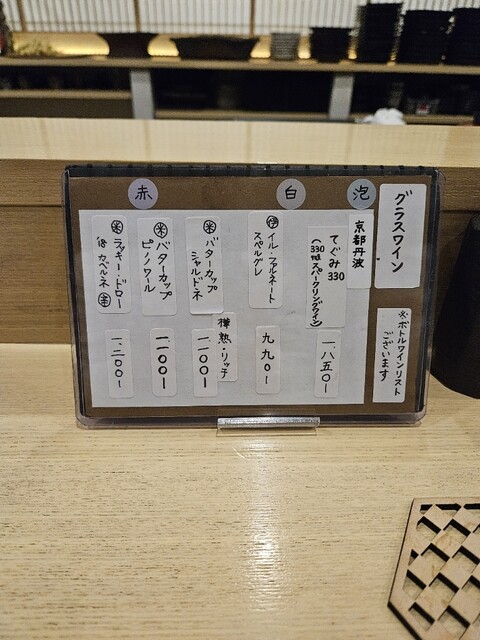 グラスワイン
※ボトルワインリスト
ございます
泡
京都丹波
てぐみ330
(330mlスパークリングワイン)
一、八五〇-
白
伊
イル・ファルネート
スペルグレ
九九〇-
米
バターカップ
シャルドネ
樽熟・リッチ
一一〇〇-
赤
米
バターカップ
ピノノワール
一一〇〇-
米
ラッキー・ドロー
'18 カベルネ
一、二〇〇-